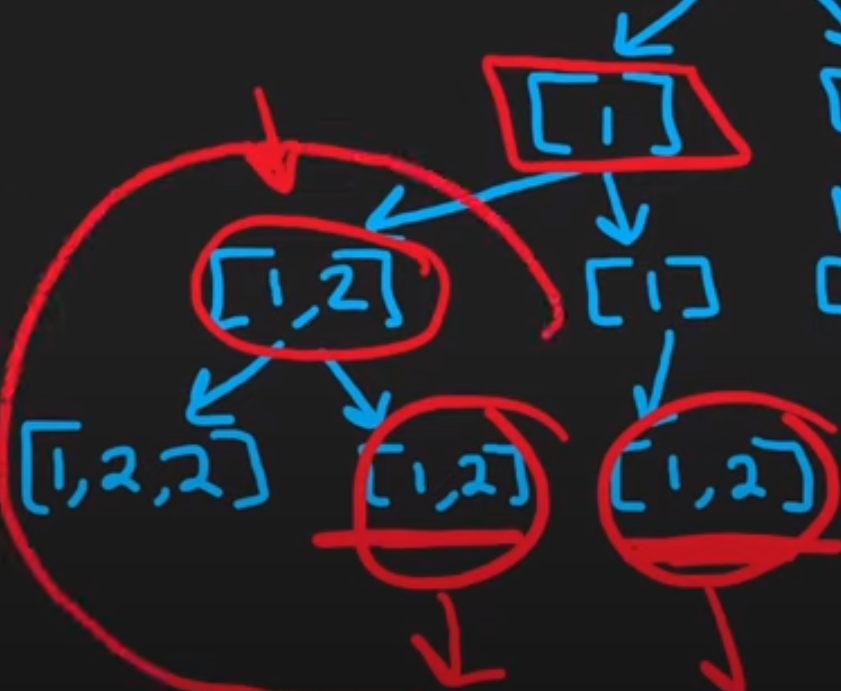 [1]
[1,2] [1]
[1,2,2] [1,2] [1,2]